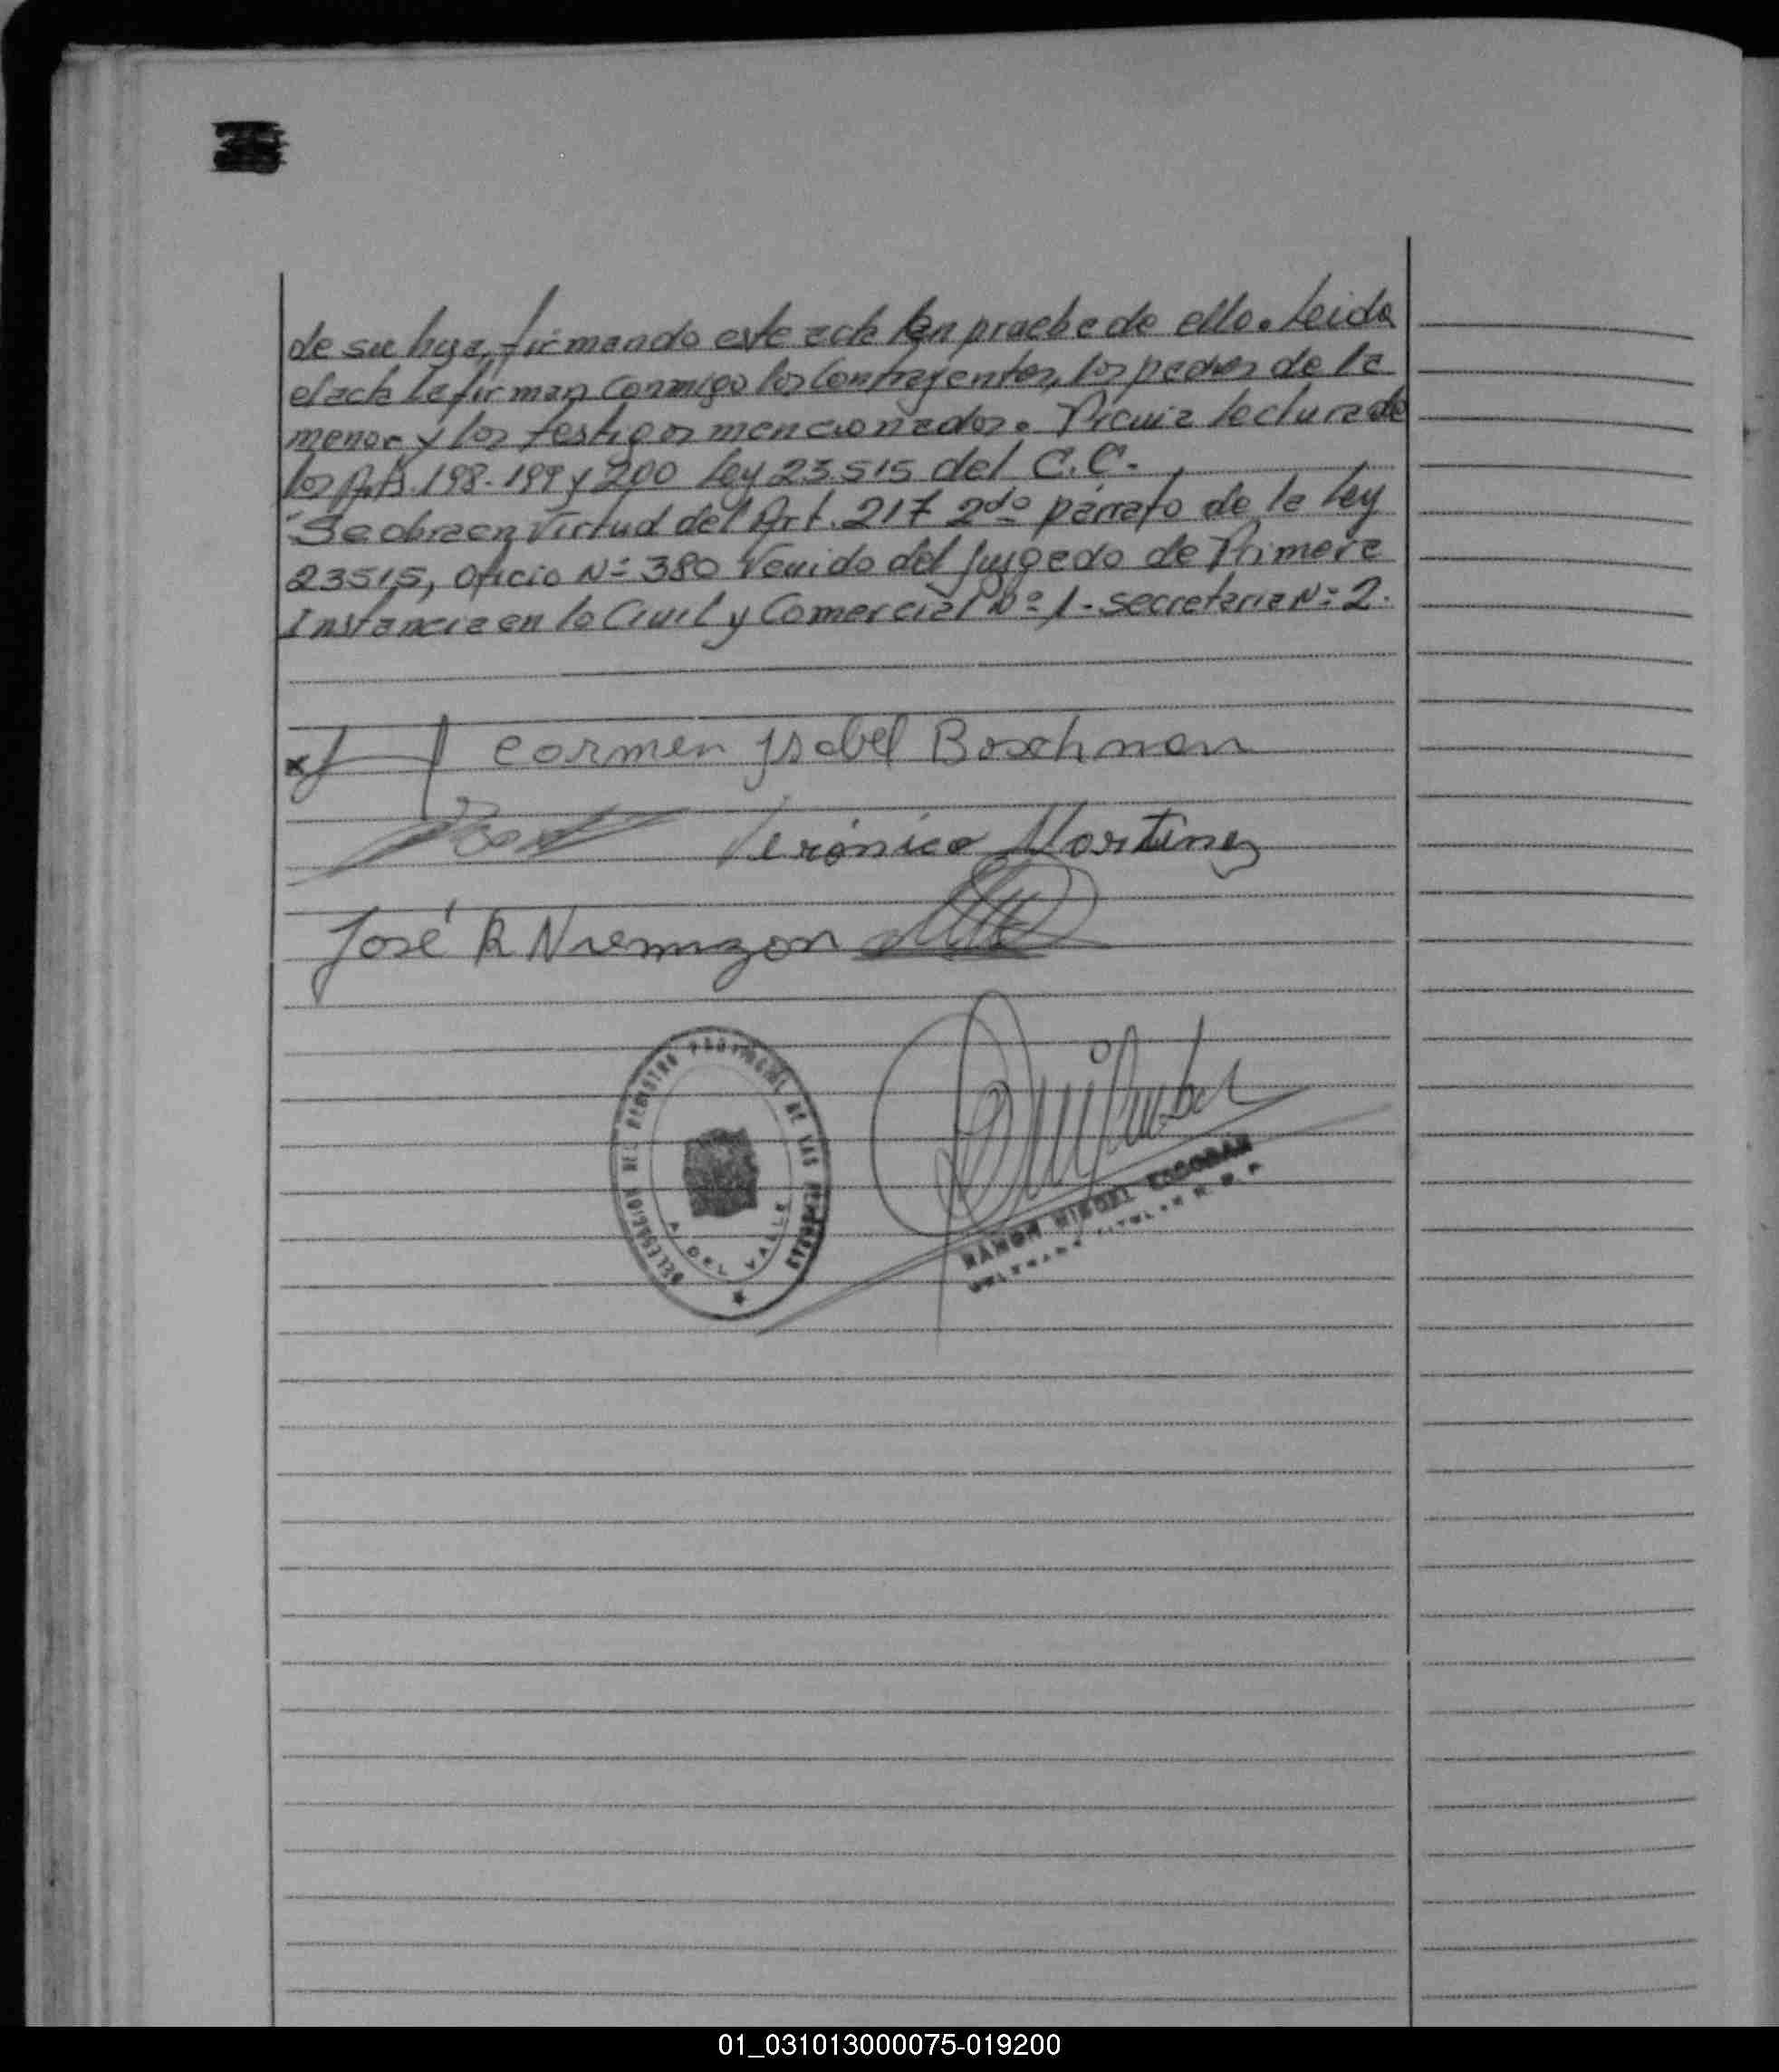 de su hija, firmando este acta en prueba de ello. Leida
el acta la firman conmigo los Contrayentes, los padres de la
menor y los testigos mencionados. Previa lectura de
los Arts. 198-199 y 200 Ley 23.515 del C.C.-
Se obra en Virtud del Art. 217 2do párrafo de la Ley
23515, Oficio Nº 380 Venido del Juzgado de Primera
Instancia en lo Civil y Comercial Nº 1- Secretaria Nº 2.
x
Carmen Isabel Boschman
Verónica Martínez
José R
DELEGACION DEL REGISTRO PROVINCIAL DE LAS PERSONAS
A. DEL VALLE
RAMON MIGUEL ESCOBAR
01_031013000075-019200